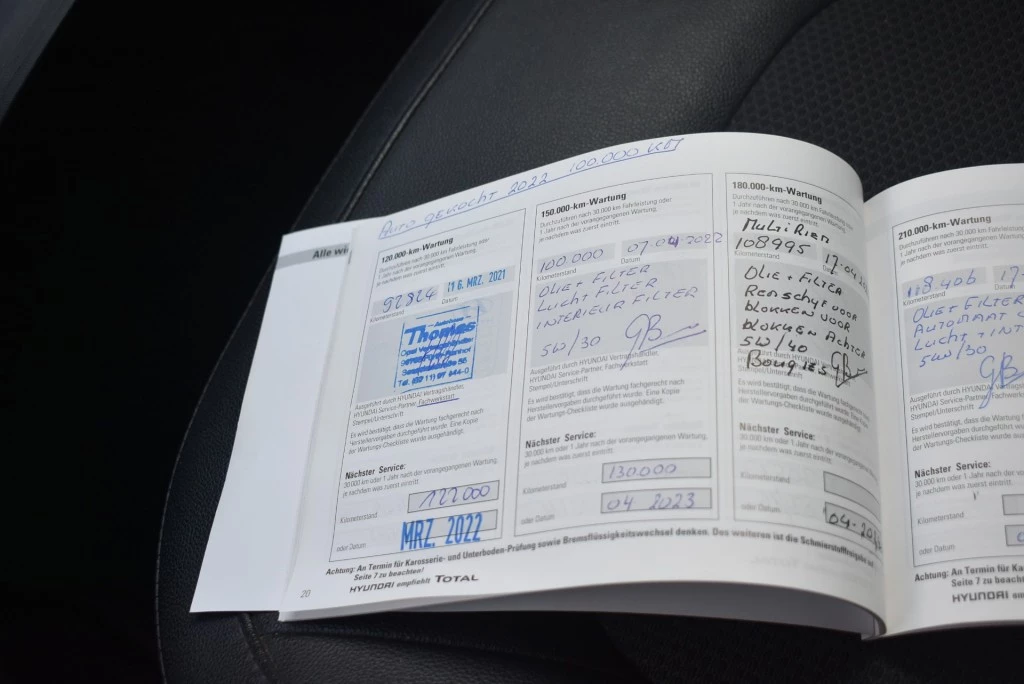 Auto gekocht 2022 100.000 km
Alle wi
120.000-km-Wartung
Durchzuführen nach 30.000 km Fahrleistung oder
1 Jahr nach der vorangegangenen Wartung,
je nachdem was zuerst eintritt.
92824
16. MRZ. 2021
Kilometerstand
Datum
Thomas
Opel
Tel.
Ausgeführt durch HYUNDAI Vertragshändler,
HYUNDAI Service-Partner, Fachwerkstatt
Stempel/Unterschrift
Es wird bestätigt, dass die Wartung fachgerecht nach
Herstellervorgaben durchgeführt wurde. Eine Kopie
der Wartungs-Checkliste wurde ausgehändigt.
Nächster Service:
30.000 km oder 1 Jahr nach der vorangegangenen Wartung,
je nachdem was zuerst eintritt.
Kilometerstand
122000
oder Datum
MRZ. 2022
150.000-km-Wartung
Durchzuführen nach 30.000 km Fahrleistung oder
1 Jahr nach der vorangegangenen Wartung,
je nachdem was zuerst eintritt.
100.000
07.04.2022
Kilometerstand
Datum
OLIE + FILTER
LUCHT FILTER
INTERIEUR FILTER
5W/30
GB
Ausgeführt durch HYUNDAI Vertragshändler,
HYUNDAI Service-Partner, Fachwerkstatt
Stempel/Unterschrift
Es wird bestätigt, dass die Wartung fachgerecht nach
Herstellervorgaben durchgeführt wurde. Eine Kopie
der Wartungs-Checkliste wurde ausgehändigt.
Nächster Service:
30.000 km oder 1 Jahr nach der vorangegangenen Wartung,
je nachdem was zuerst eintritt.
Kilometerstand
130.000
oder Datum
04 2023
180.000-km-Wartung
Durchzuführen nach 30.000 km Fahrleistung oder
1 Jahr nach der vorangegangenen Wartung,
je nachdem was zuerst eintritt.
Multi Riem
108995
17-04-2
Kilometerstand
OLIE + FILTER
Remschyf VOOR
BLOKKEN VOOR
BLOKKEN ACHTER
5W/40
Bougies
GB
Ausgeführt durch HYUNDAI
HYUNDAI Service-Partner
Stempel/Unterschrift
Es wird bestätigt, dass die Wartung fachgerecht nach
Herstellervorgaben durchgeführt wurde. Eine
der Wartungs-Checkliste wurde ausgehändigt.
Nächster Service:
30.000 km oder 1 Jahr nach der vorangegangenen
je nachdem was zuerst eintritt.
Kilometerstand
oder Datum
04-20
Achtung: An Termin für Karosserie- und Unterboden-Prüfung sowie Bremsflüssigkeitswechsel denken. Des weiteren ist die Schmierstofffreigabe auf
Seite 7 zu beachten!
20
HYUNDAI empfiehlt TOTAL
210.000-km-Wartung
Durchzuführen nach 30.000 km Fahrleistung
1 Jahr nach der vorangegangenen Wartung,
je nachdem was zuerst eintritt.
118.406
17-
Kilometerstand
OLIE + FILTER
AUTOMAAT
LUCHT + INT
5W/30
GB
Ausgeführt durch HYUNDAI
HYUNDAI Service-Partner, Fachwerkstatt
Stempel/Unterschrift
Es wird bestätigt, dass die Wartung
Herstellervorgaben durchgeführt
der Wartungs-Checkliste wurde
Nächster Service:
30.000 km oder 1 Jahr nach der
je nachdem was zuerst eintritt.
Kilometerstand
oder Datum
Achtung: An Termin für Karosserie- und
Seite 7 zu beachten!
HYUNDAI